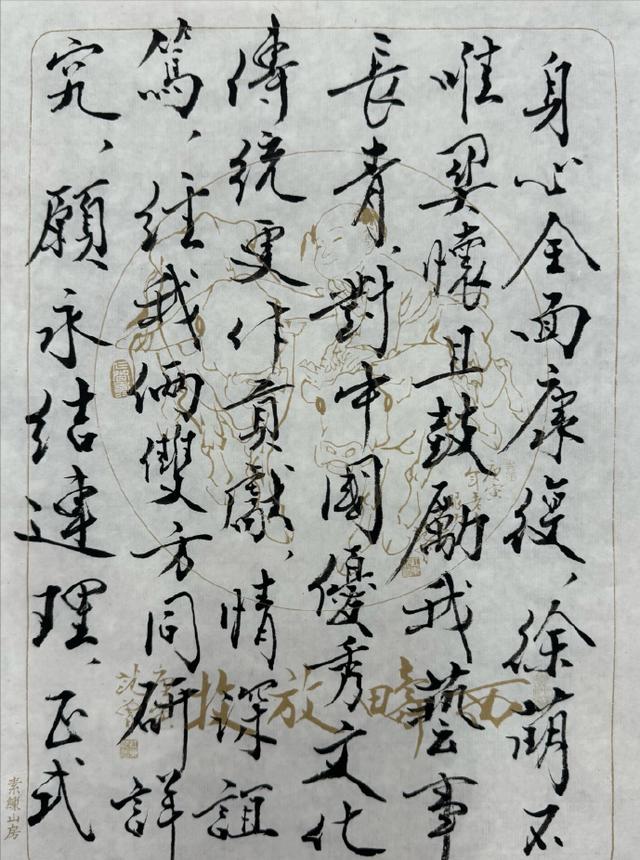 身心全面康復，徐萌不
唯畀懷且鼓勵我藝事
長青，對中國優秀文化
傳統更作貢獻，情深誼
篤，經我倆雙方同研詳
究，願永結連理，正式
西疇放牧
素練山房